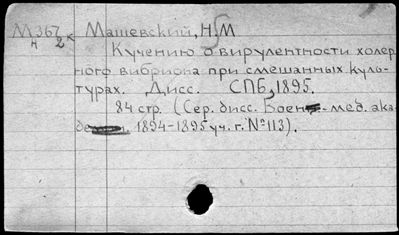 М367 Машевский, Н М
н 2
К учению о вирулентности холер
ного вибриона при смешанных куль-
турах. Дисс. СПБ, 1895.
84 стр. (Сер. дисс. Воен.-мед. ака
де 1894-1895 уч. г. №113).